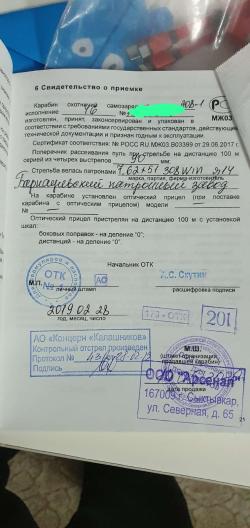 6 Свидетельство о приемке
Карабин охотничий самозаряд 308-1
исполнение 46 №
изготовлен, принят, законсервирован и упакован в
соответствии с требованиями государственных стандартов, действующей
технической документации и признан годным к эксплуатации.
Сертификат соответствия: № РОСС RU.МЖ03.В03399 от 29.06.2017 г.
Поперечник рассеивания пуль при стрельбе на дистанцию 100 м
серией из четырех выстрелов 90 мм.
Стрельба велась патронами 7,62×51 308WIN
марка, партия, фирма-изготовитель
Барнаульский патронный завод
На карабине установлен оптический прицел (при поставке
карабина с оптическим прицелом) модели №
Оптический прицел пристрелян на дистанцию 100 м с установкой
шкал:
боковых поправок - на деление "0";
дистанций - на деление "0".
Начальник ОТК
ОТК
АО
М.П.
личный штамп
расшифровка подписи
2019 02 28
год, месяц, число
ОТК
201
АО «Концерн «Калашников»
Контрольный отстрел произведен
Протокол №
Подпись
М.Ш.
(штамп организации,
продавшей карабин)
ООО "Арсенал"
дата продажи
167009 г. Сыктывкар,
ул. Северная, д. 65
21
РС
МЖ03